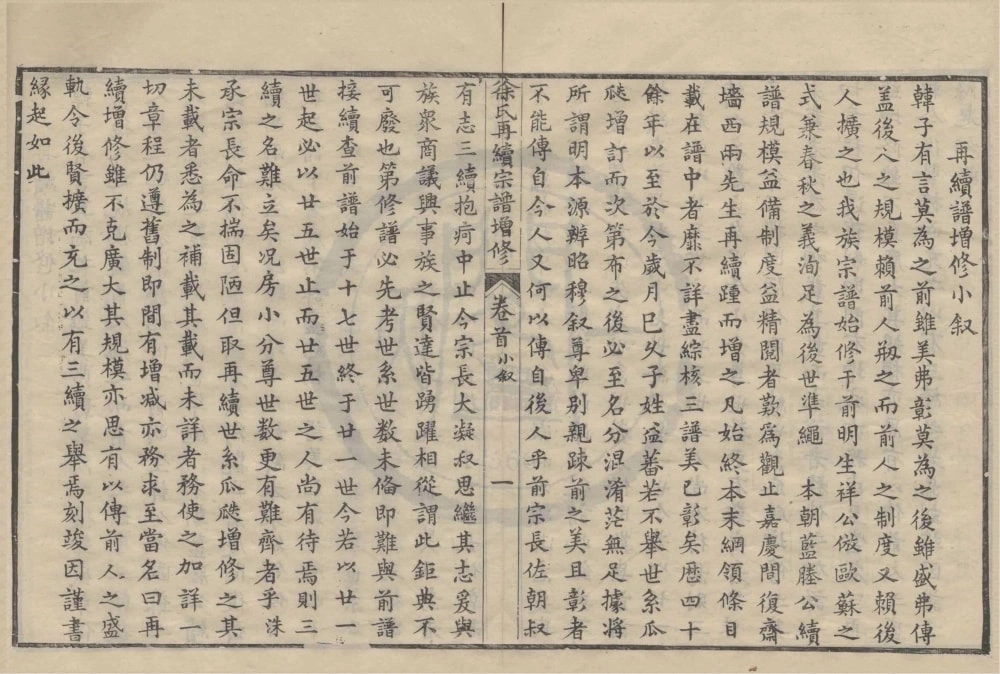 再續譜增修小叙
韓子有言莫為之前雖美弗彰莫為之後雖盛弗傳
盖後人之規模賴前人刱之而前人之制度又賴後
人擴之也我族宗譜始修于前明生祥公倣歐蘇之
式兼春秋之義洵足為後世準繩 本朝藍塍公續
譜規模益備制度益精閱者歎為觀止嘉慶間復齋
墻西兩先生再續踵而增之凡始終本末綱領條目
載在譜中者靡不詳盡綜核三譜美已彰矣歷四十
餘年以至於今歲月已久子姓益蕃若不舉世系瓜
瓞增訂而次第布之後必至名分混淆茫無足據將
所謂明本源辨昭穆叙尊卑別親踈前之美且彰者
不能傳自今人又何以傳自後人乎前宗長佐朝叔
徐氏再續宗譜增修 卷首小叙 一
有志三續抱疴中止今宗長大凝叔思繼其志爰與
族衆商議興事族之賢達皆踴躍相從謂此鉅典不
可廢也第修譜必先考世系世数未俻即難與前譜
接續查前譜始于十七世終于廿一世今若以廿一
世起必以廿五世止而廿五世之人尚有待焉則三
續之名難立矣况房小分尊世数更有難齊者乎洙
承宗長命不揣固陋但取再續世系瓜瓞增修之其
未載者悉為之補載其載而未詳者務使之加詳一
切章程仍遵舊制即間有增减亦務求至當名曰再
續增修雖不克廣大其規模亦思有以傳前人之盛
軌令後賢擴而充之以有三續之舉焉刻竣因謹書
緣起如此